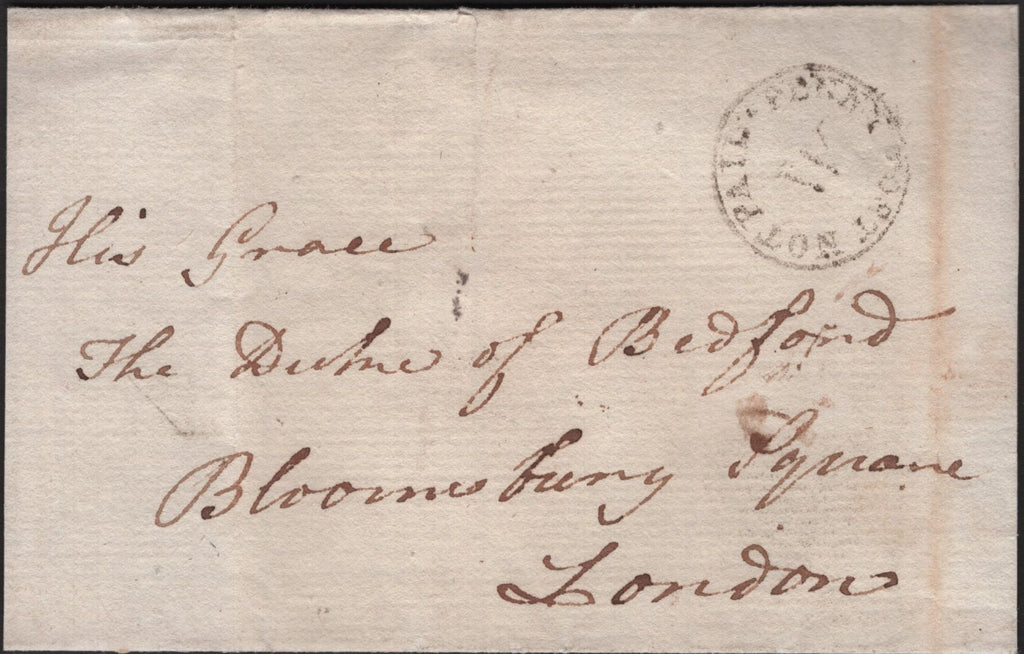 PENNY POST NOT PAID
His Grace
The Duke of Bedford
Bloomsbury Square
London